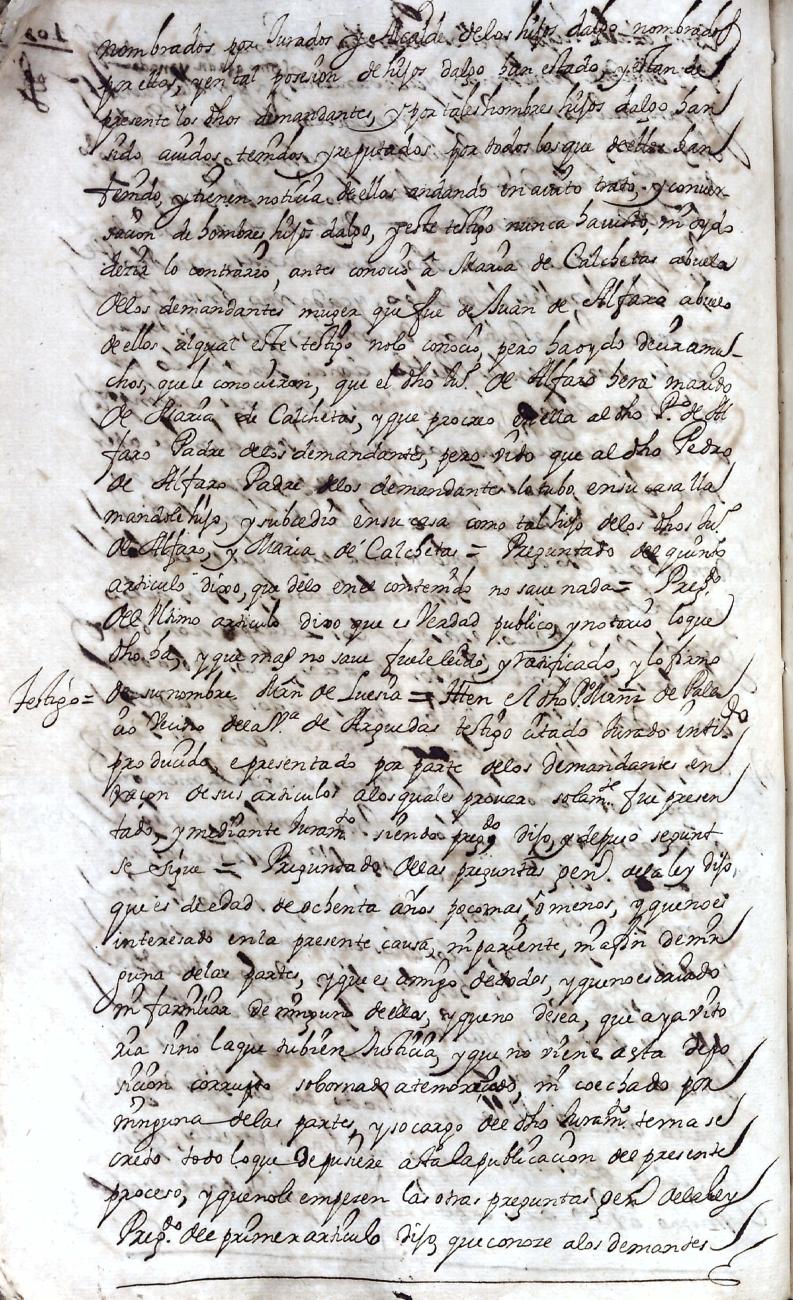 108
nombrados por Jurados y Alcalde de los hijos dalgo nombrados
por ellos, y en tal posesion de hijos dalgo han estado, y estan de
presente los dhos demandantes, y por tales hombres hijos dalgo han
sido auidos, tenidos, y reputados por todos los que de ellos han
tenido, y tienen noticia de ellos andando en auito trato, y conver-
sacion de hombres hijos dalgo, y este testigo nunca ha visto, ni oydo
dezir lo contrario, antes conocio â Maria de Calchetas abuela
de los demandantes muger que fue de Juan de Alfaro abuelo
de ellos, al qual este testigo nolo conocio, pero ha oydo decir a mu-
chos, que le conocieron, que el dho Juº de Alfaro hera marido
de Maria de Calchetas, y que procreo en ella al dho Pº de Al
faro Padre de los demandantes, pero vido que al dho Pedro
de Alfaro Padre de los demandantes lo tubo en su casa lla
mandole hijo, y subcedio en su casa como tal hijo de los dhos Juº
de Alfaro, y Maria de Calchetas = Preguntado del quinto
articulo dixo, que delo en el contenido no saue nada = Pregdo
del Ultimo articulo dixo que es Verdad publico, y notorio lo que
dho ha, y que mas no saue fuele leido, y ratificado, y lo firmo
Testigo =
de su nombre Juan de Luesia = Item el dho Martin de Pala
cio Vecino de la Vª de Arguedas testigo citado Jurado inti-do
producido, e presentado por parte de los demandantes en
racon de sus articulos a los quales provar solamte fue presen
tado, y mediante Juramto siendo pregdo dijo, y depuso segunt
se sigue = Preguntado de las preguntas gen. de la ley dijo,
que es de edad de ochenta años poco mas, ô menos, y que no es
interesado en la presente causa, ni pariente, ni afin de nin
guna de las partes, y que es amigo de todos, y que no es criado
ni familiar de ninguno de ellos, y que no desea, que aya vito
ria sino la que tubiere Justicia, y que no viene a esta depo
sicion corrupto sobornado atemorizado, ni coechado por
ninguna de las partes, y so cargo del dho Juramto terna se
creto todo lo que depusiere asta la publicacion del presente
proceso, y que nole empecen las otras preguntas gen. de la ley
Pregdo del primer articulo dijo, que conoze a los demantes